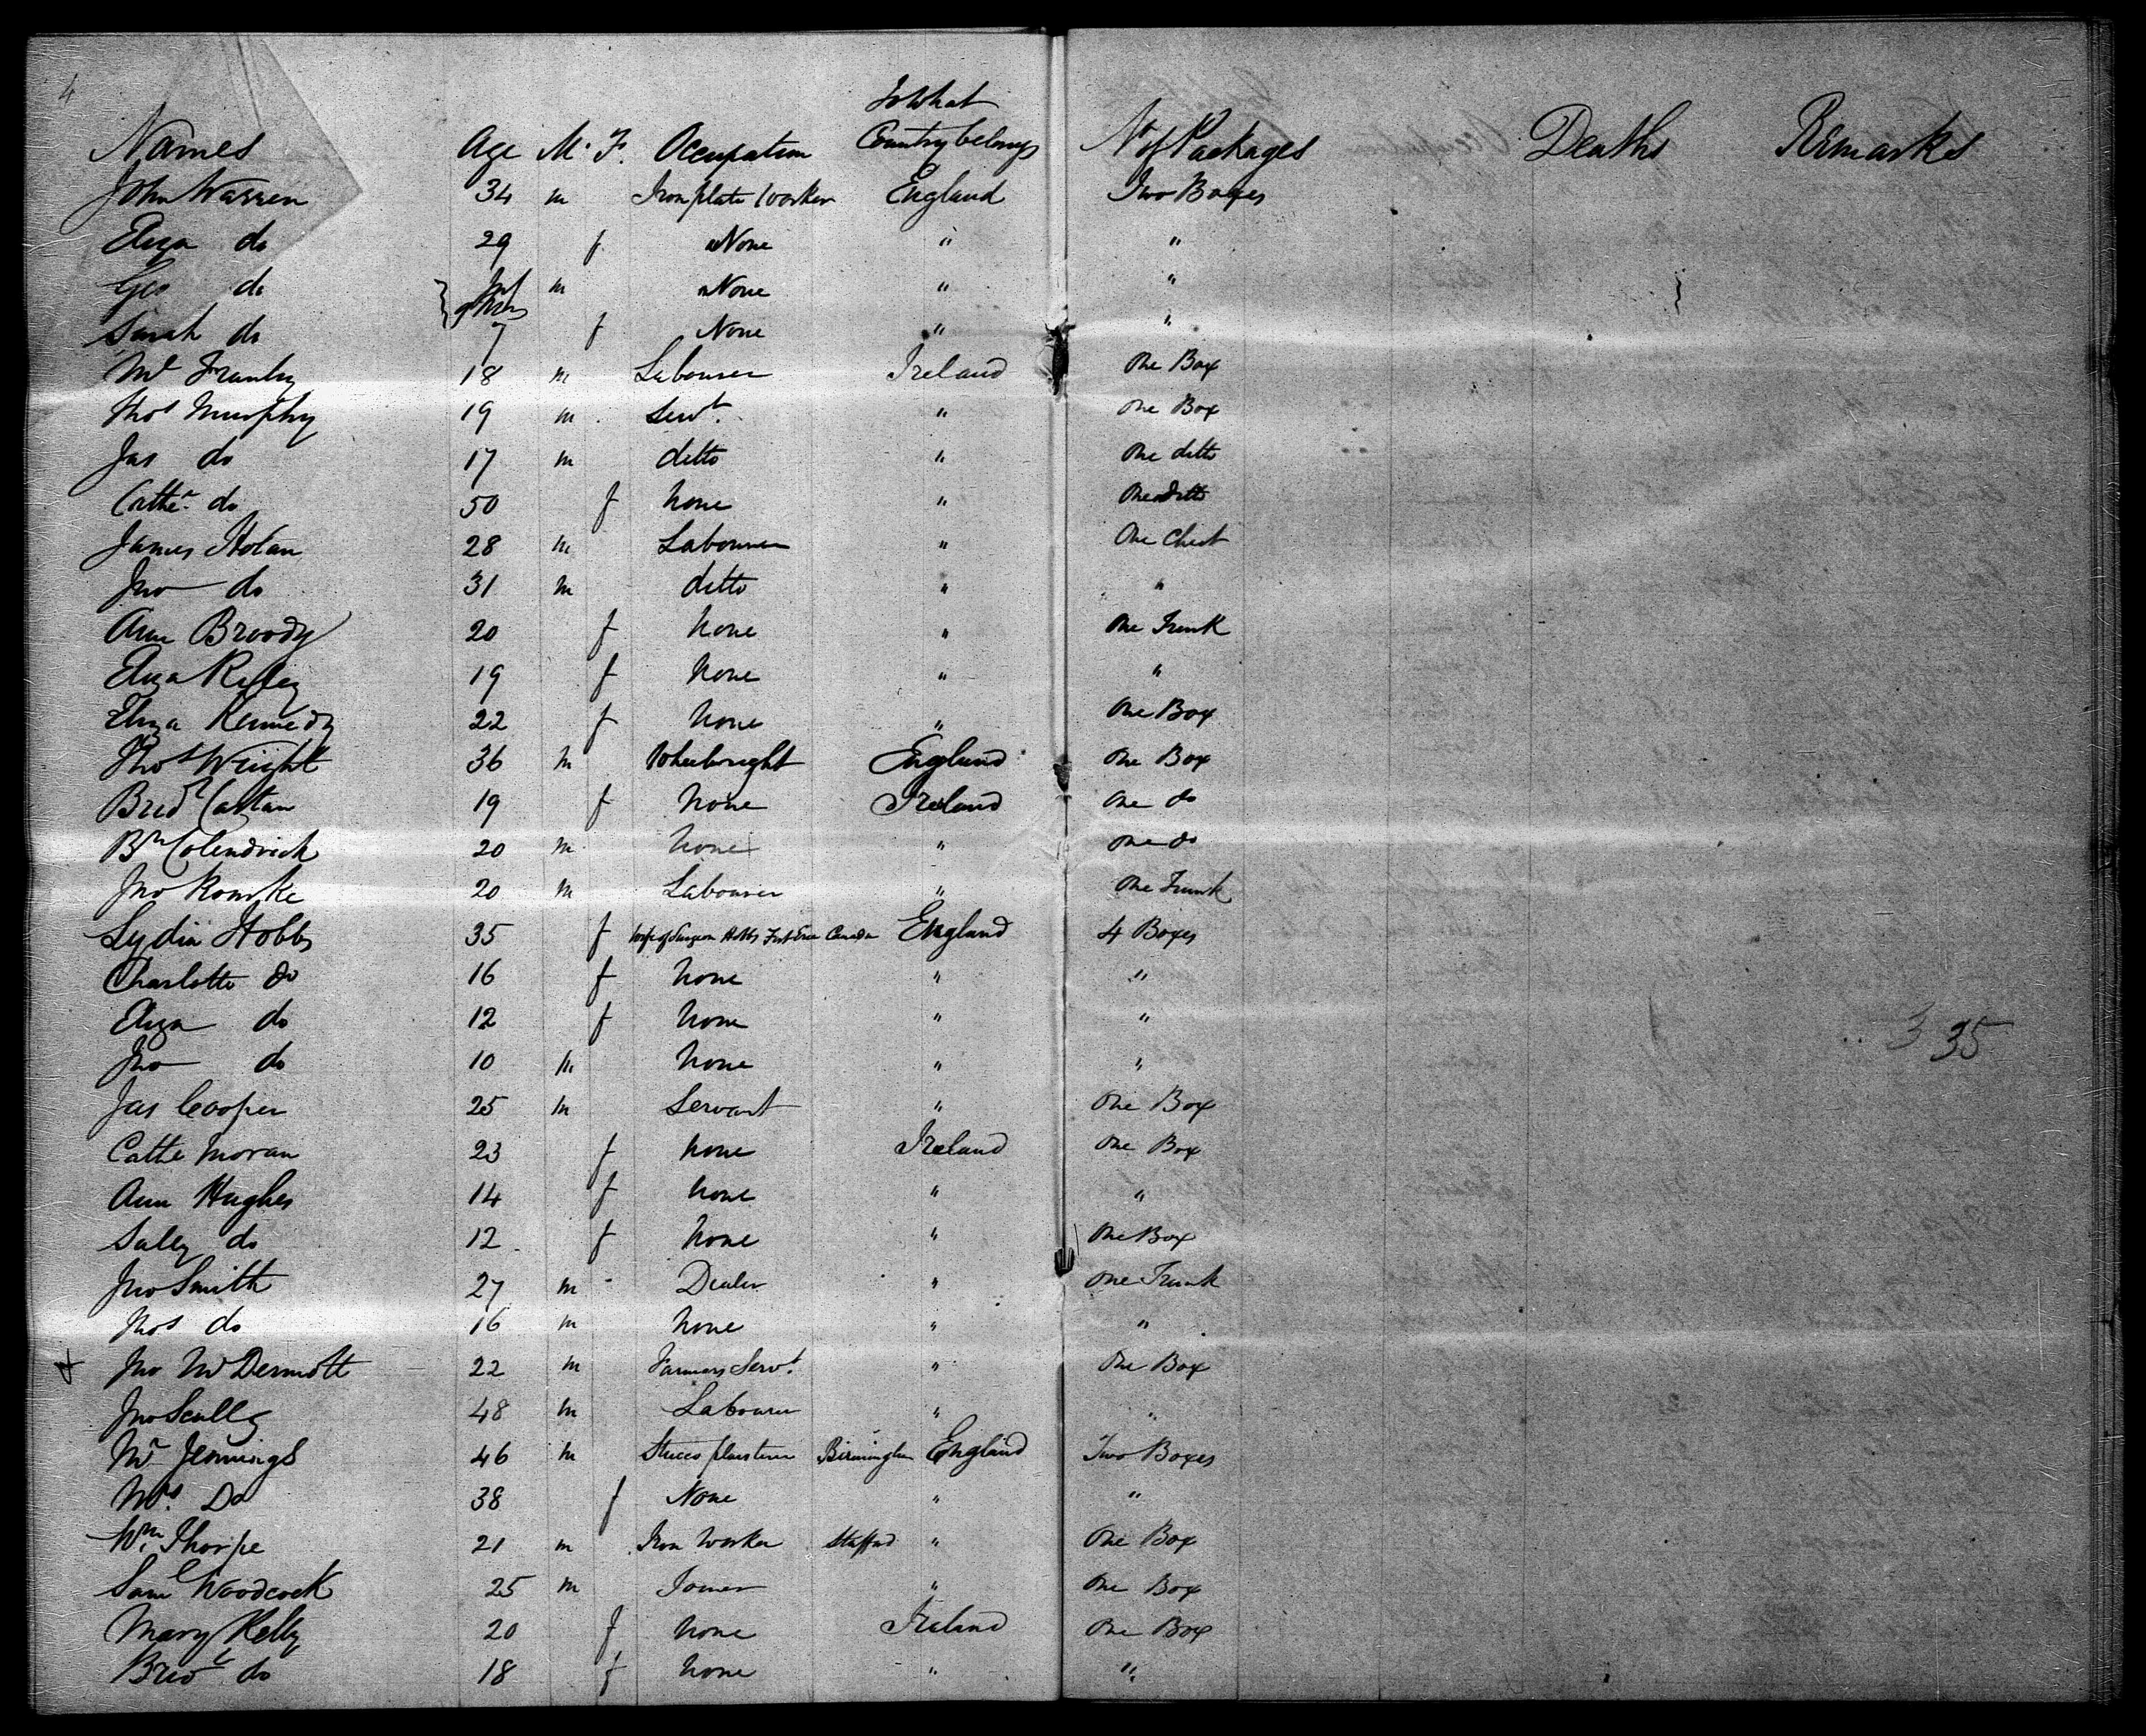 4
To What
Names Age M. F. Occupation Country belongs No of Packages Deaths Remarks
John Warren 34 m Iron plate Worker England Two Boxes
Eliza do 29 f None " "
Geo do Inf m None " "
9 Mos
Sarah do 7 f None " "
18 m Labourer Ireland One Box
Thos Murphy 19 m Servt. " One Box
Jas do 17 m ditto " One ditto
Cathe do 50 f None " One ditto
James Holan 28 m Labourer " One Chest
Jno do 31 m ditto " "
Ann Broody 20 f None " One Trunk
Eliza Reiley 19 f None " "
Eliza Kennedy 22 f None " One Box
Thos Wright 36 m Wheelwright England One Box
Bridt 19 f None Ireland One do
20 m None " One do
Jno Rourke 20 m Labourer " One Trunk
Lydia Hobbs 35 f Wife of Surgeon Hobbs Fort Erie Canada England 4 Boxes
Charlotte do 16 f None " "
Eliza do 12 f None " "
Jno do 10 m None " "
3 35
Jas Cooper 25 m Servant " One Box
Cathe Moran 23 f None Ireland One Box
Ann Hughes 14 f None " "
Saley do 12 f None " One Box
Jno Smith 27 m Dealer " One Trunk
Thos do 16 m None " "
Jno McDermott 22 m Farmers Servt. " One Box
Jno Scully 48 m Labourer " "
Mr Jennings 46 m Stucco plasterer Birmingham England Two Boxes
Mrs. Do 38 f None " "
Wm. Thorpe 21 m Iron Worker Staffod " One Box
Saml Woodcock 25 m Joiner " One Box
Mary Kelly 20 f None Ireland One Box
Bridt do 18 f None " "